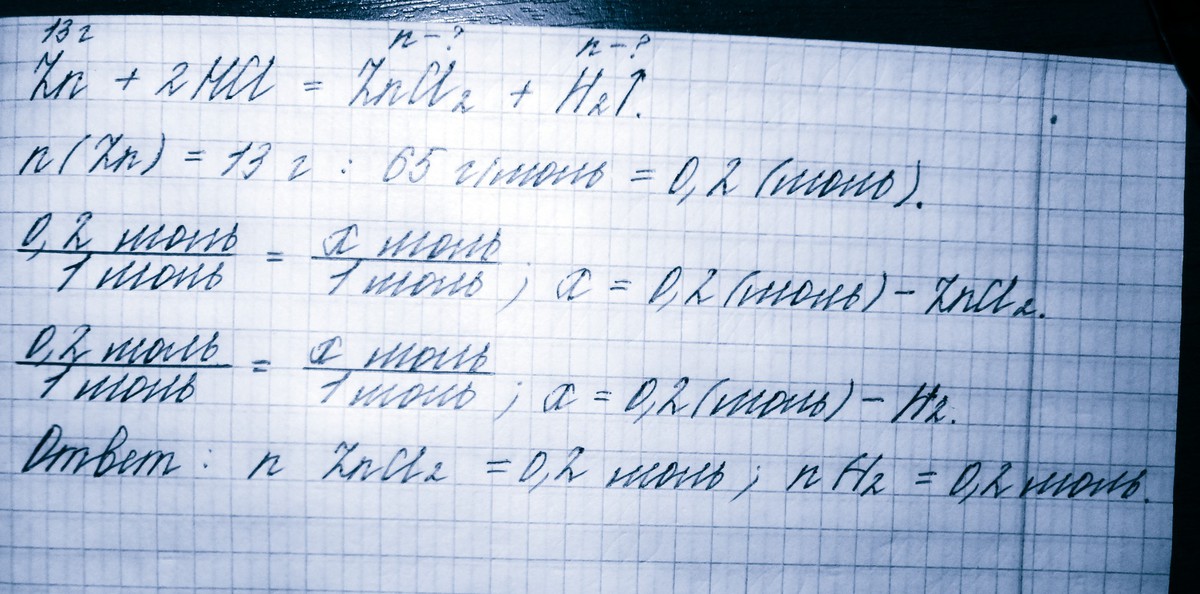 13 г n - ? n - ?
Zn + 2HCl = ZnCl₂ + H₂↑.
n(Zn) = 13 г : 65 г/моль = 0,2 (моль).
0,2 моль / 1 моль = x моль / 1 моль ; x = 0,2 (моль) - ZnCl₂.
0,2 моль / 1 моль = x моль / 1 моль ; x = 0,2 (моль) - H₂.
Ответ : n ZnCl₂ = 0,2 моль ; n H₂ = 0,2 моль.